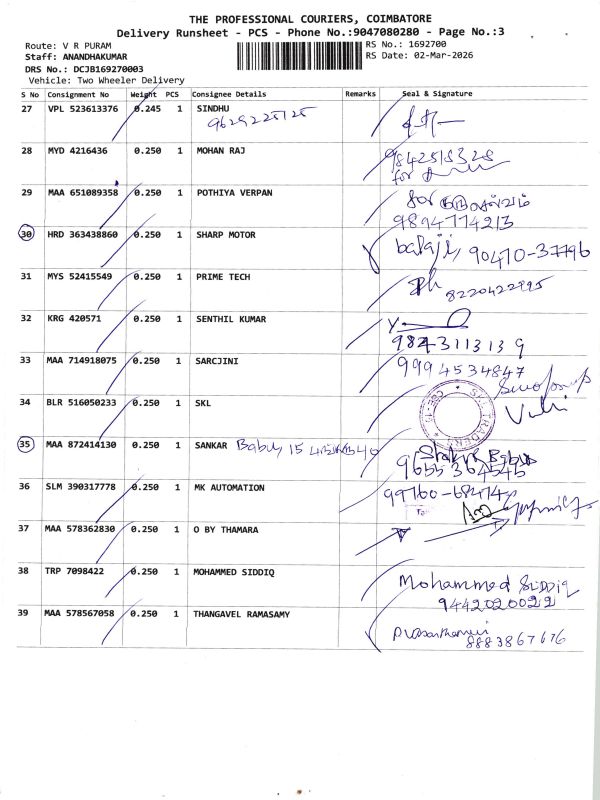 THE PROFESSIONAL COURIERS, COIMBATORE
Delivery Runsheet - PCS - Phone No.:9047080280 - Page No.:3
Route: V R PURAM
Staff: ANANDHAKUMAR
DRS No.: DCJB169270003
Vehicle: Two Wheeler Delivery
RS No.: 1692700
RS Date: 02-Mar-2026
S No Consignment No Weight PCS Consignee Details Remarks Seal & Signature
27 VPL 523613376 0.245 1 SINDHU
9629225725
28 MYD 4216436 0.250 1 MOHAN RAJ
9842518328
for
29 MAA 651089358 0.250 1 POTHIYA VERPAN
for
9894774213
30 HRD 363438860 0.250 1 SHARP MOTOR
balaji, 90470-37796
31 MYS 52415549 0.250 1 PRIME TECH
8220422995
32 KRG 420571 0.250 1 SENTHIL KUMAR
9843113139
33 MAA 714918075 0.250 1 SARCJINI
9994534847
34 BLR 516050233 0.250 1 SKL
35 MAA 872414130 0.250 1 SANKAR Babu
9655364545
36 SLM 390317778 0.250 1 MK AUTOMATION
99760-68474
37 MAA 578362830 0.250 1 O BY THAMARA
38 TRP 7098422 0.250 1 MOHAMMED SIDDIQ
Mohammed SIDDIQ
9442020022
39 MAA 578567058 0.250 1 THANGAVEL RAMASAMY
8883867676